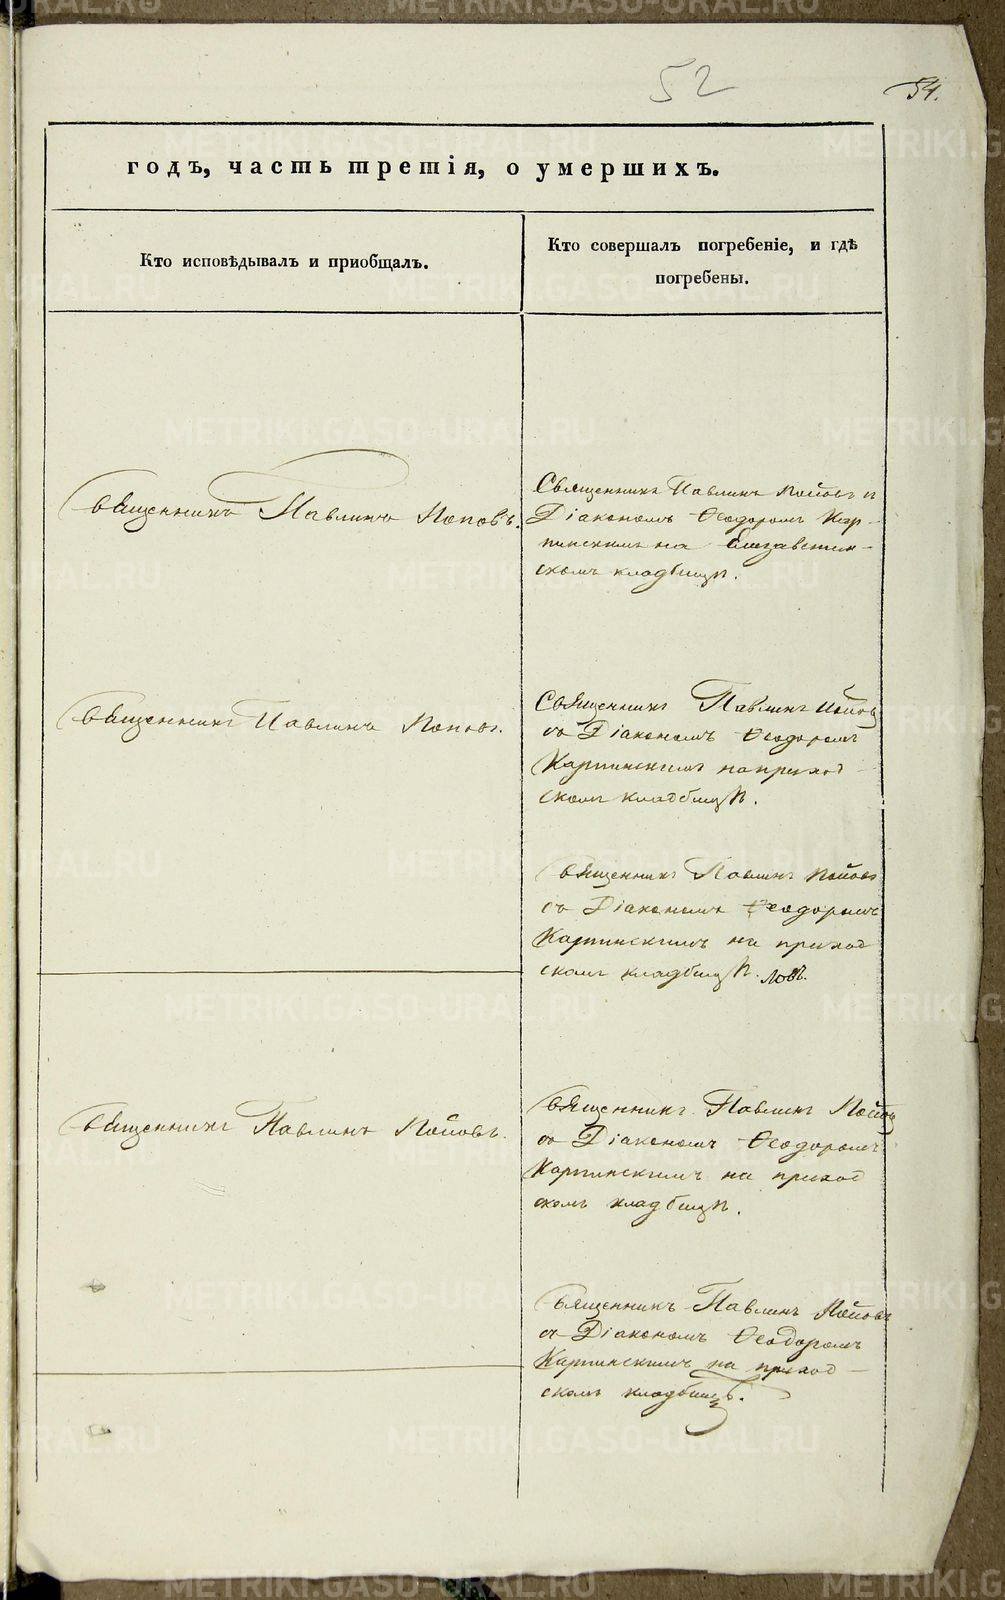 52
54.
годъ, часть третія, о умершихъ.
Кто исповѣдывалъ и приобщалъ.
Кто совершалъ погребеніе, и гдѣ
погребены.
Священникъ Павлинъ Поповъ.
Священникъ Павлинъ Поповъ и
Діакономъ Ѳеодоромъ Кар-
пинскимъ на Елизаветин-
скомъ кладбищѣ.
Священникъ Павлинъ Поповъ.
Священникъ Павлинъ Поповъ
съ Діакономъ Ѳеодоромъ
Карпинскимъ на приход-
скомъ кладбищѣ.
Священникъ Павлинъ Поповъ
съ Діакономъ Ѳеодоромъ
Карпинскимъ на приход
скомъ кладбищѣ.
Священникъ Павлинъ Поповъ.
Священникъ Павлинъ Поповъ
съ Діакономъ Ѳеодоромъ
Карпинскимъ на приход
скомъ кладбищѣ.
Священникъ Павлинъ Поповъ
съ Діакономъ Ѳеодоромъ
Карпинскимъ на приход-
скомъ кладбищѣ.
METRIKI.GASO-URAL.RU